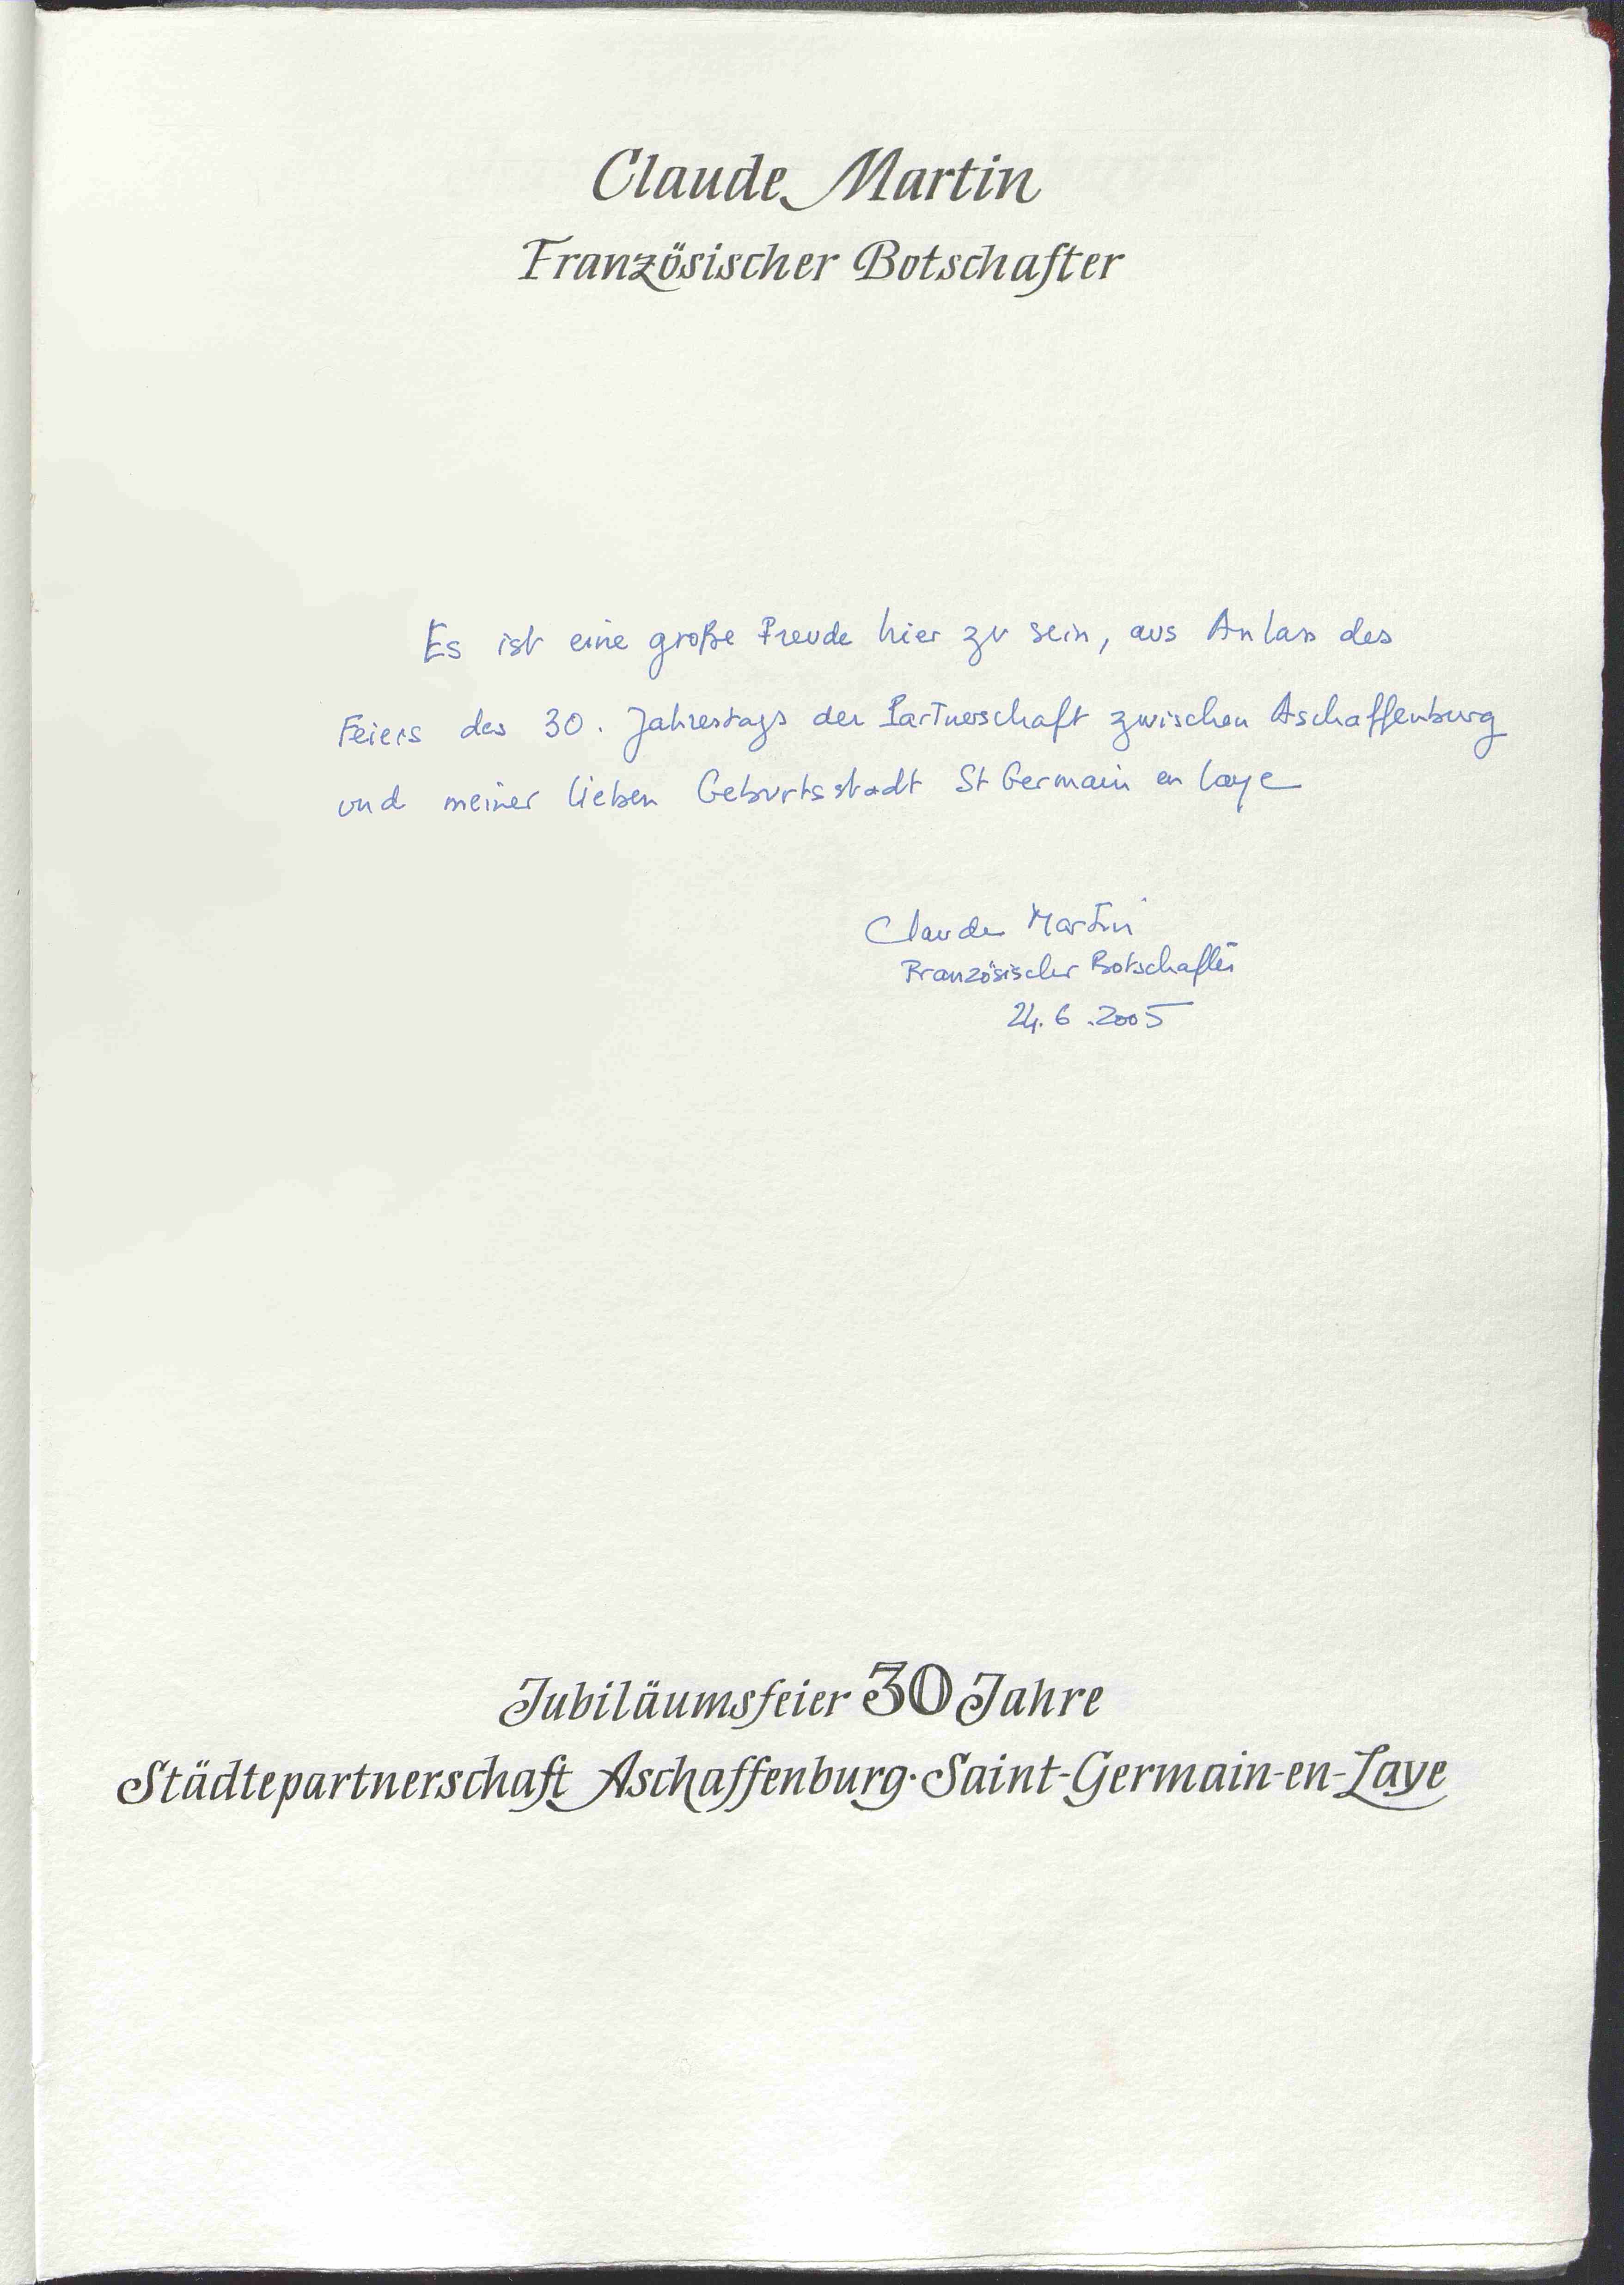 Claude Martin
Französischer Botschafter
Es ist eine große Freude hier zu sein, aus Anlass des
Feiers des 30. Jahrestags der Partnerschaft zwischen Aschaffenburg
und meiner lieben Geburtsstadt St Germain en Laye
Claude Martin
Französischer Botschafter
24.6.2005
Jubiläumsfeier 30 Jahre
Städtepartnerschaft Aschaffenburg·Saint-Germain-en-Laye